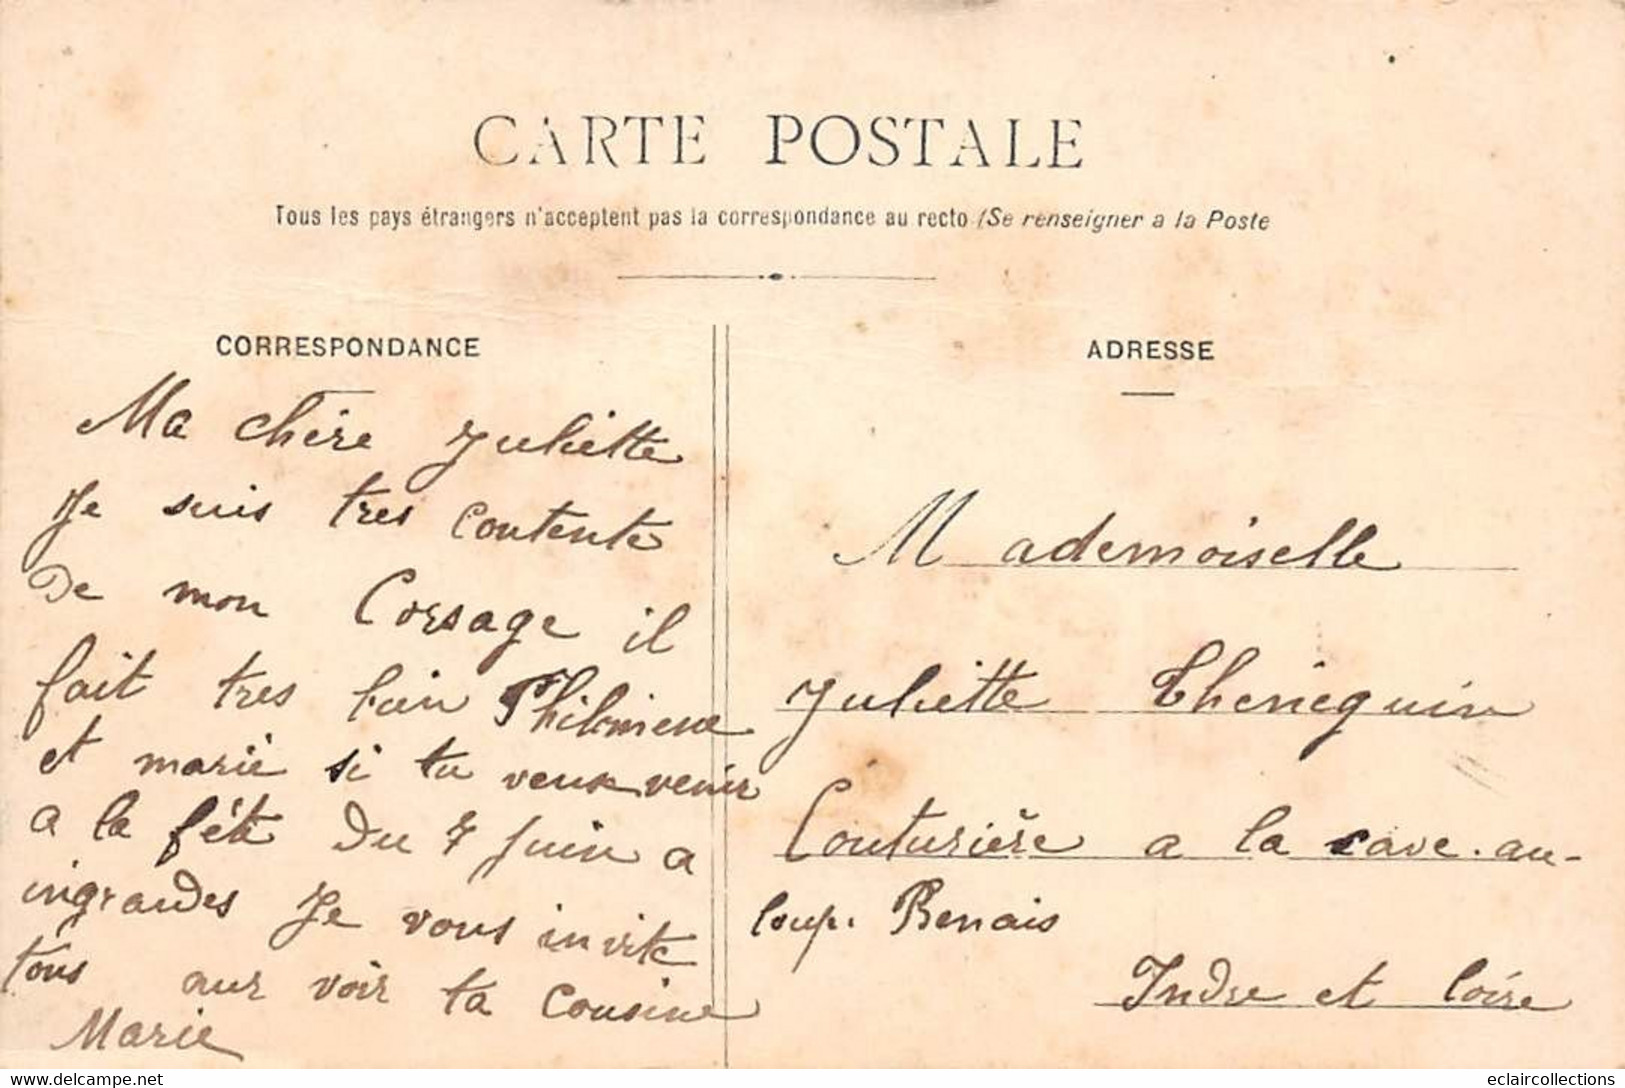 CARTE POSTALE
Tous les pays étrangers n'acceptent pas la correspondance au recto (Se renseigner a la Poste
CORRESPONDANCE
Ma chère Juliette
Je suis tres contente
De mon Corsage il
fait tres bien Philomene
et marie si tu veux venir
a la fête Du 7 Juin a
ingrandes Je vous invite
tous aur voir ta Cousine
Marie
ADRESSE
Mademoiselle
Juliette
Couturière a la cave-au-
loup. Benais
Indre et Loire
eclaircollections